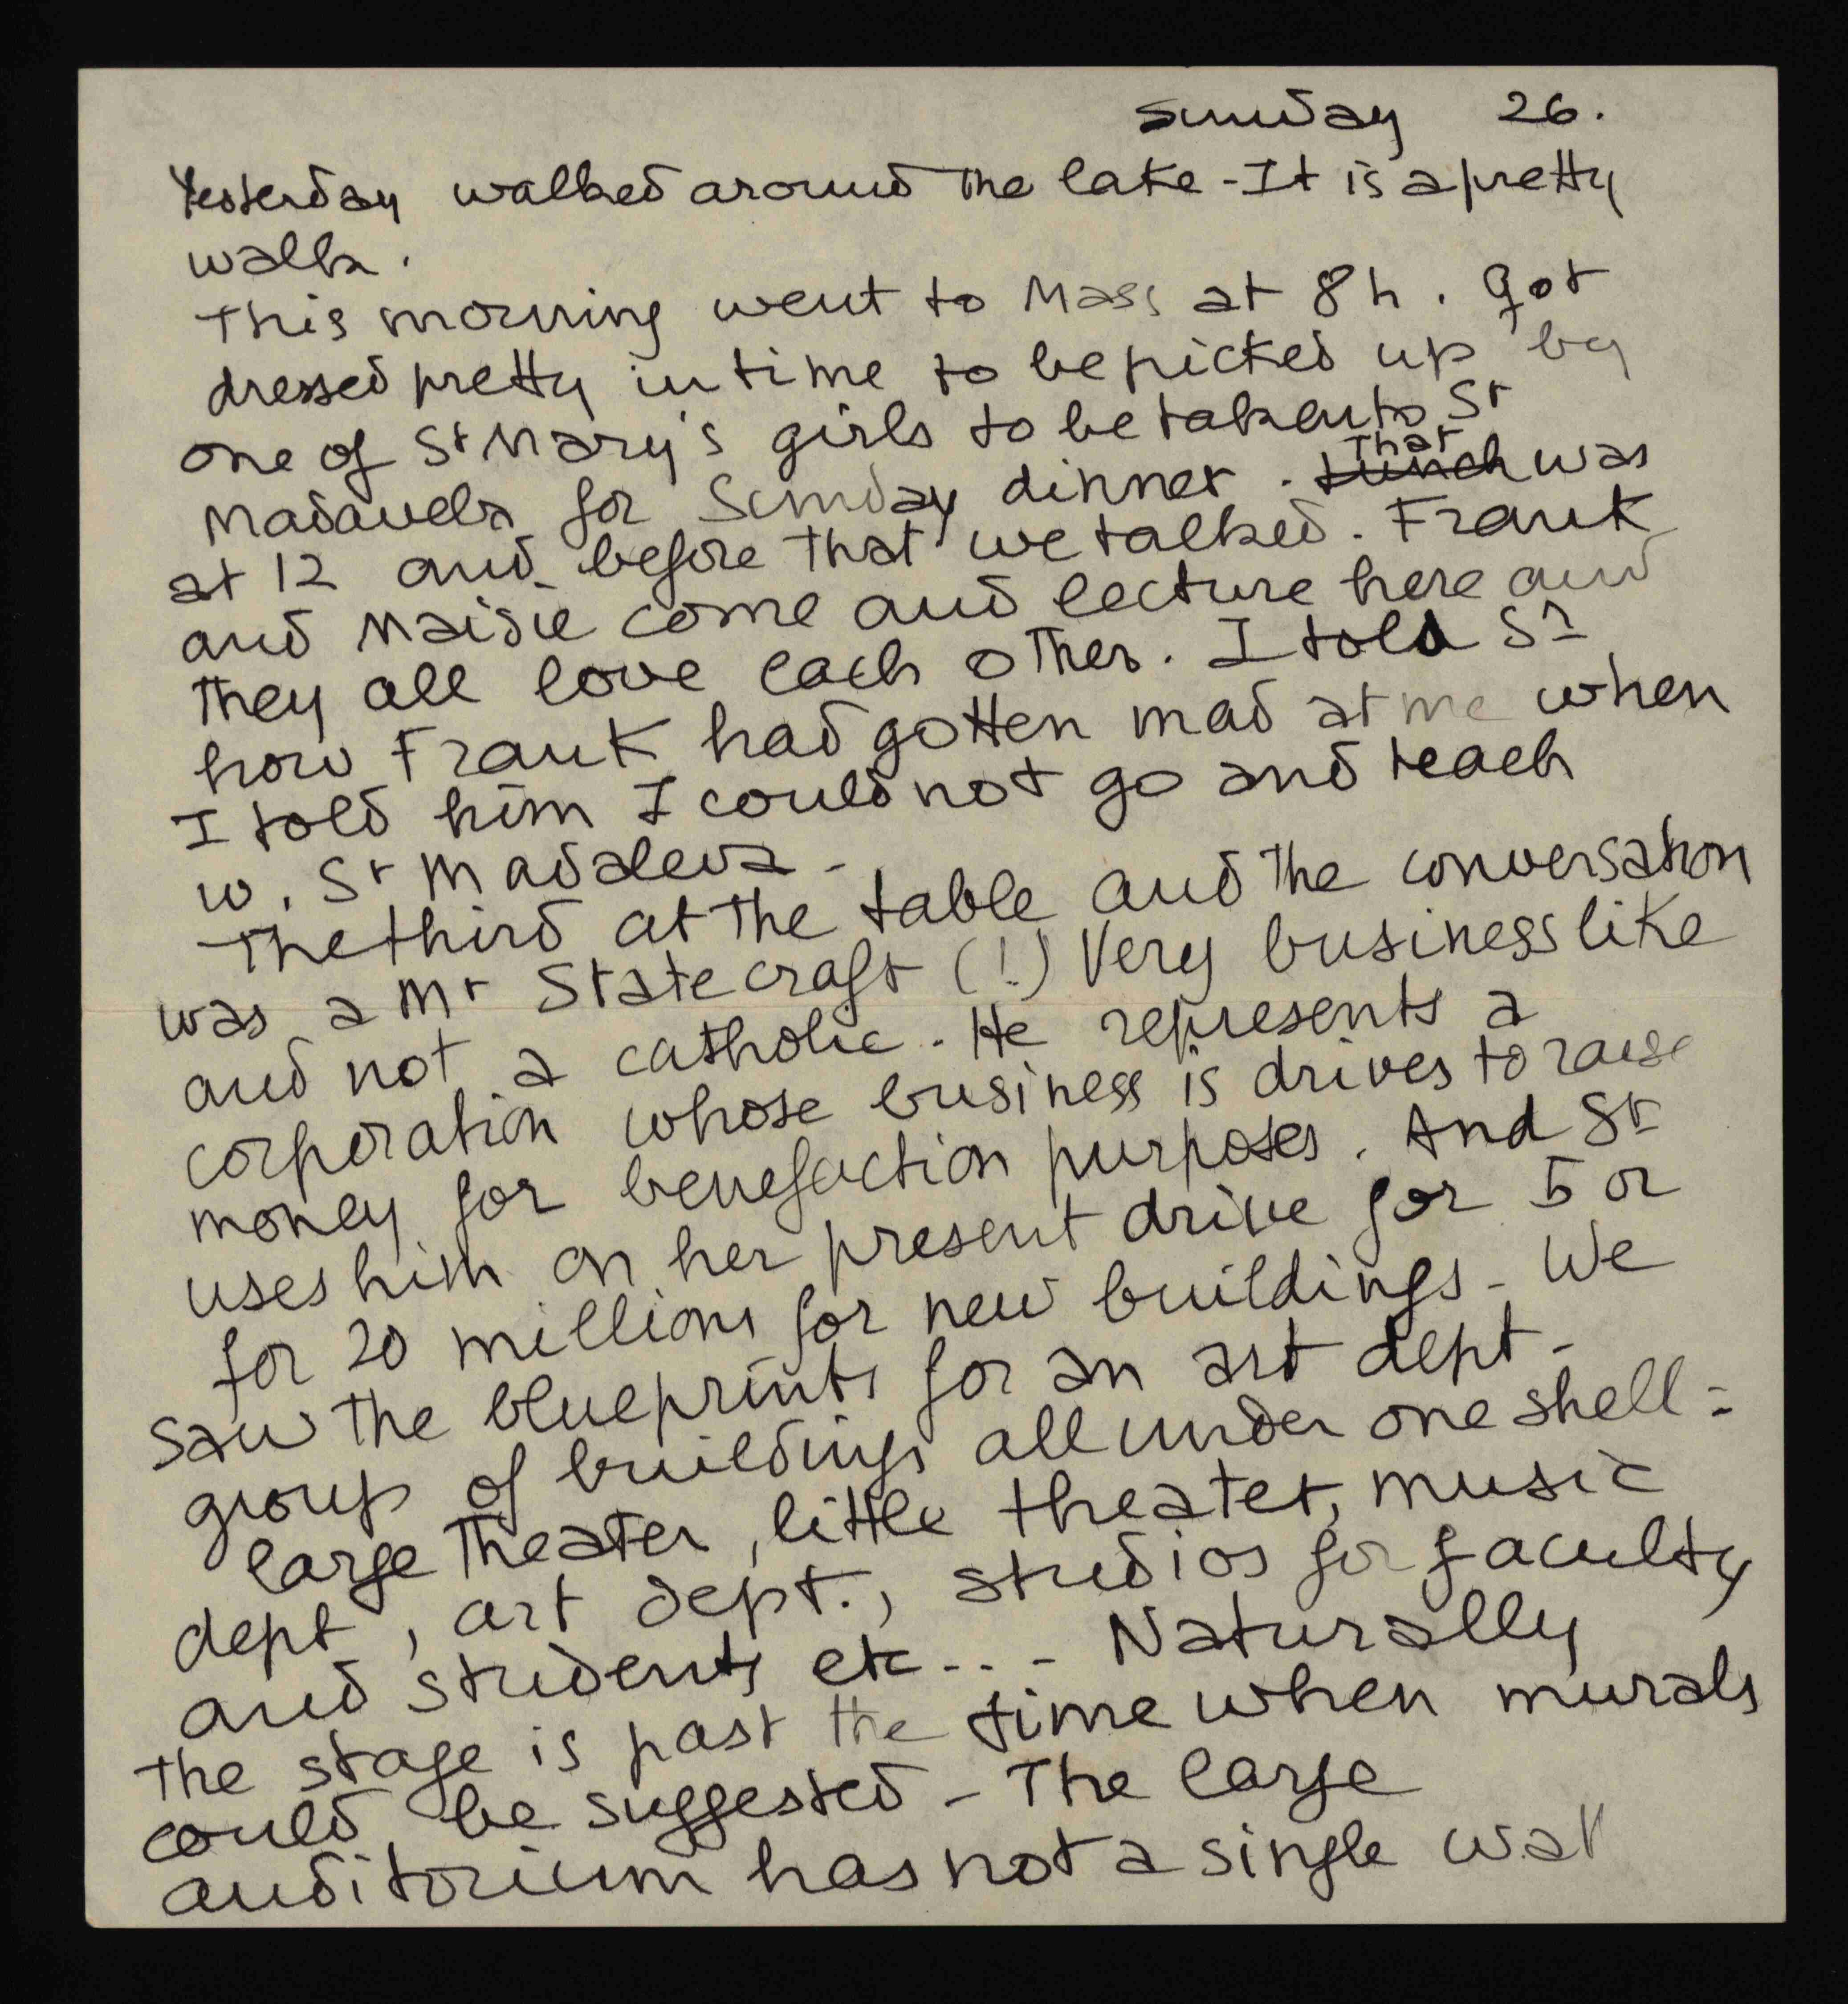 Sunday 26.
Yesterday walked around the lake - It is a pretty
walk.
This morning went to Mass at 8h. Got
dressed pretty in time to be picked up by
one of St Mary's girls to be taken to Sr
Madavela for Sunday dinner. Lunch That was
at 12 and before that we talked. Frank
and Maisie come and lecture here and
they all love each other. I told Sr
how Frank had gotten mad at me when
I told him I could not go and teach
w. Sr Madaleva -
The third at the table and the conversation
was a Mr Statecraft (!) Very business like
and not a catholic. He represents a
corporation whose business is drives to raise
money for benefaction purposes. And Sr
uses him on her present drive for 5 or
for 20 millions for new buildings - We
saw the blueprints for an art dept -
group of buildings all under one shell =
large theater, little theater, music
dept, art dept., studios for faculty
and students etc... - Naturally
the stage is past the time when murals
could be suggested - The large
auditorium has not a single wall